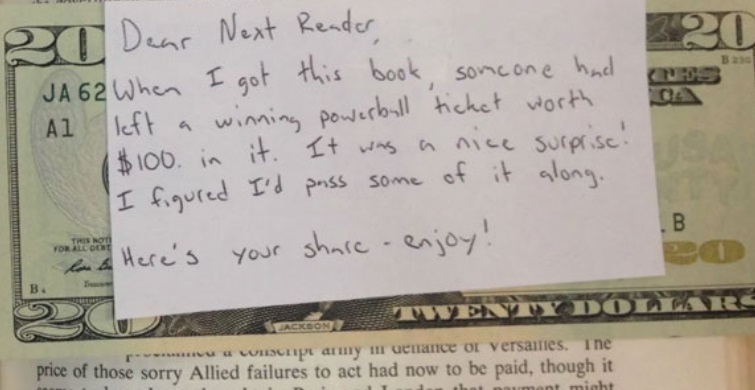 20
20
B
JA 62
A1
Dear Next Reader,
When I got this book, someone had
left a winning powerball ticket worth
$100. in it. It was a nice surprise!
I figured I'd pass some of it along.
Here's your share - enjoy!
THIS NOT
FOR ALL DEBT
B
B
20
20
JACKSON
TWENTY DOLLARS
a conscript army in defiance of Versailles. The
price of those sorry Allied failures to act had now to be paid, though it
London that payment might